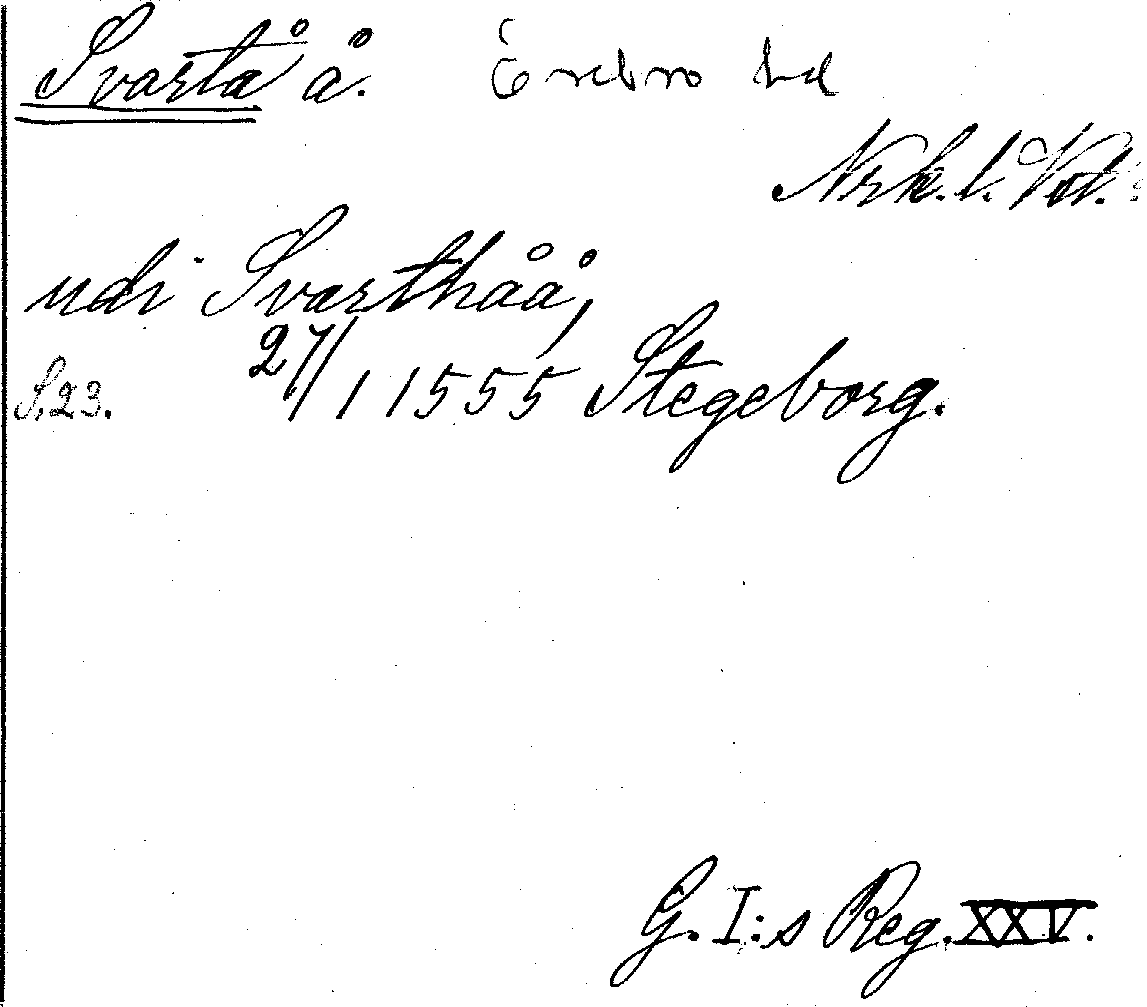 Svartå å. Örebro hd
Nrk. l.
udi Svarthåå,
S. 23. 27/1 1555 Stegeborg.
G. I:s Reg. XXV.